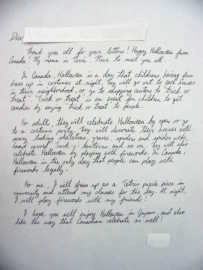 Dear
Thank you all for your letters! Happy Halloween from
Canada! My name is Nice to meet you all.
In Canada, Halloween is a day that children having fun
dress up in costumes at night. They will go out to each houses
in their neighborhood, or go to shopping malls to "Trick or
Treat". Trick or treat is an event for children to get
candies by saying trick or treat to people.
For adults, they will celebrate Halloween by open or go
to a costume party. They will decorate their houses with
scary
and so on. They will also
celebrate Halloween by playing with fireworks. In Canada,
Halloween is the only day that people can play with
fireworks legally.
For me, I will dress up as a Tetris puzzle piece in
university and attend my classes for the day. At night,
I will play fireworks with my friends.
I hope you will enjoy Halloween in Japan, and also
like the way that Canadians celebrate as well!